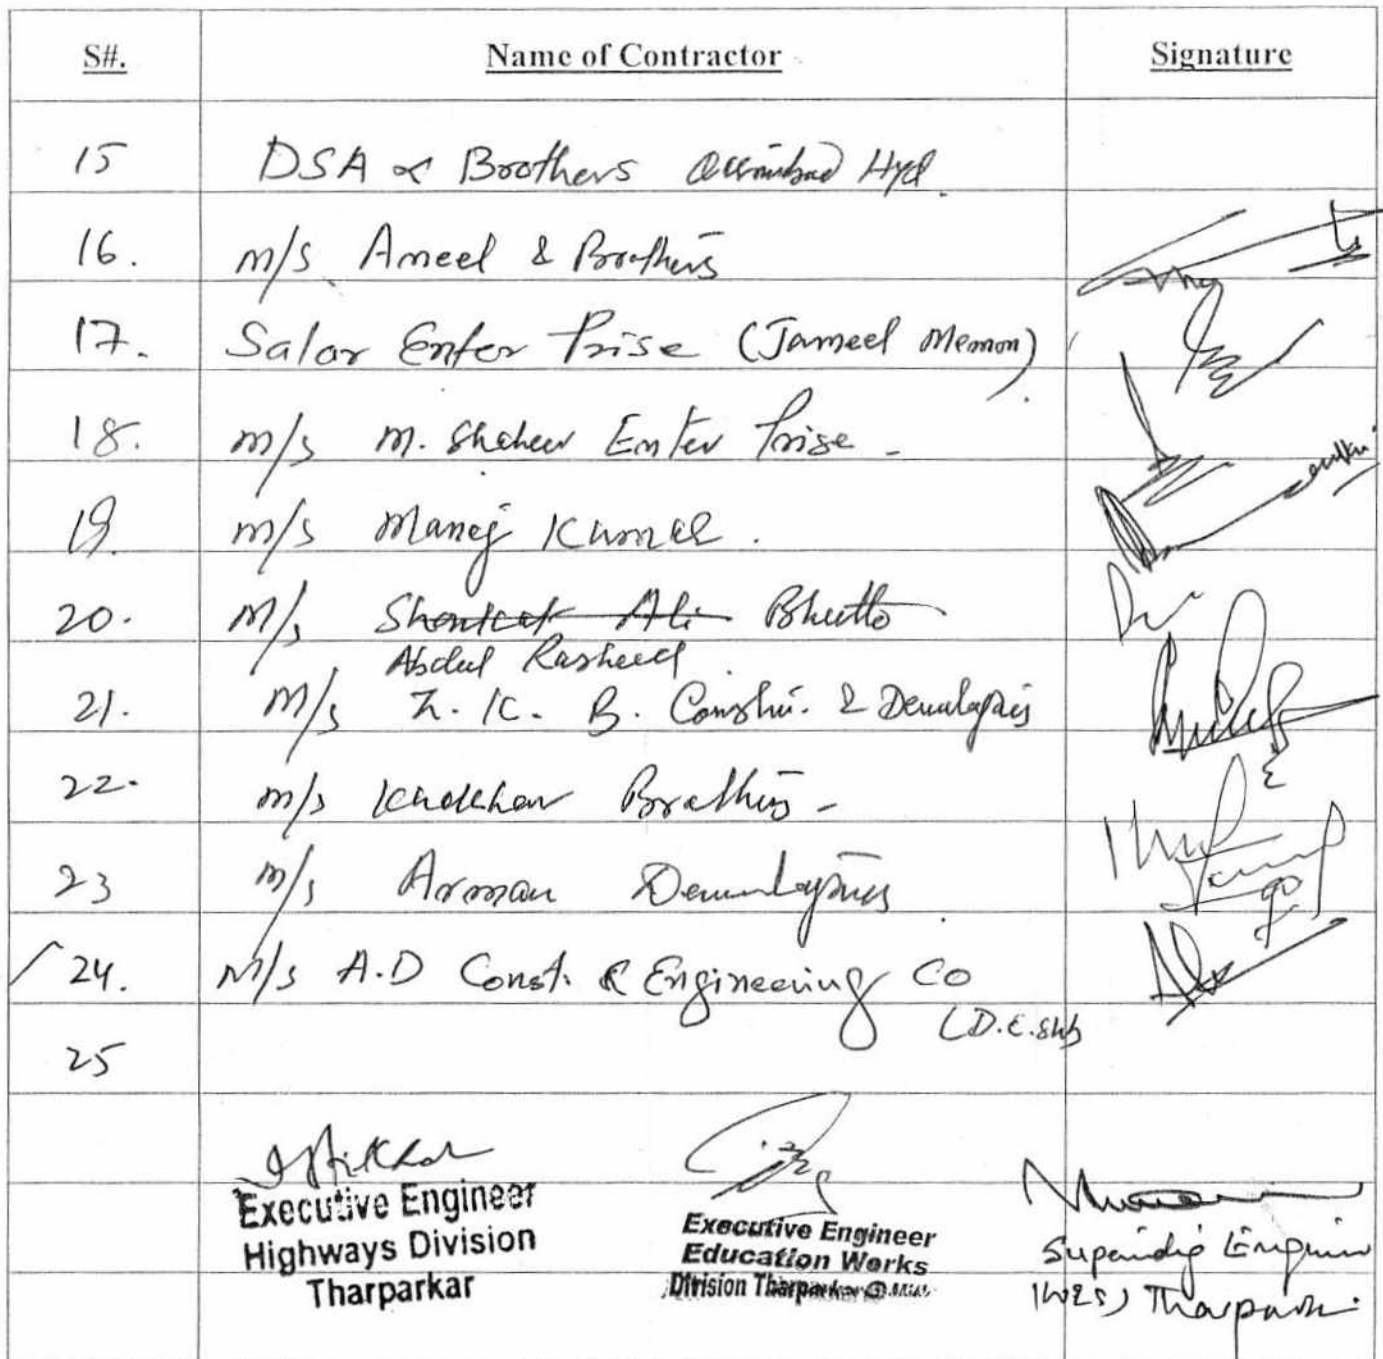 S#. Name of Contractor Signature
15 DSA & Brothers Hyd.
16. m/s Ameel & Brothers
17. Salar Enter Prise (Jameel Memon)
18. m/s M. Enter Prise -
19. m/s Manoj Kumar.
20. M/s Shoukat Ali Bhutto
Abdul Rasheed
21. m/s Z.K.B. Constru. & Developers
22. m/s Khokhar Brothers -
23 m/s Arman Developers
24. M/s A.D Const. & Engineering Co
(D.E.
25
Iftikhar
Executive Engineer
Highways Division
Tharparkar
Executive Engineer
Education Works
Division Tharparkar @
Engineer
Tharparkar